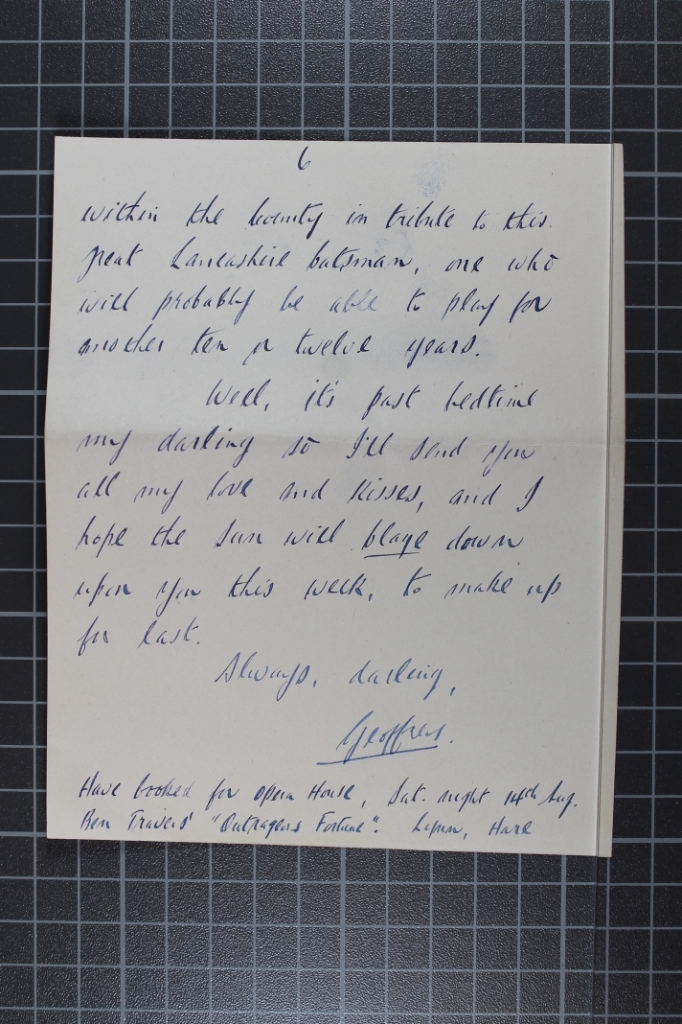 6
within the County in tribute to this
great Lancashire batsman, one who
will probably be able to play for
another ten or twelve years.
Well, it's past bedtime
my darling so I'll send you
all my love and kisses, and I
hope the sun will blaze down
upon you this week, to make up
for last.
Always, darling,
Geoffrey.
Have booked for Opera House, Sat. night 14th Aug.
Ben Travers' "Outrageous Fortune". Lynn, Hare